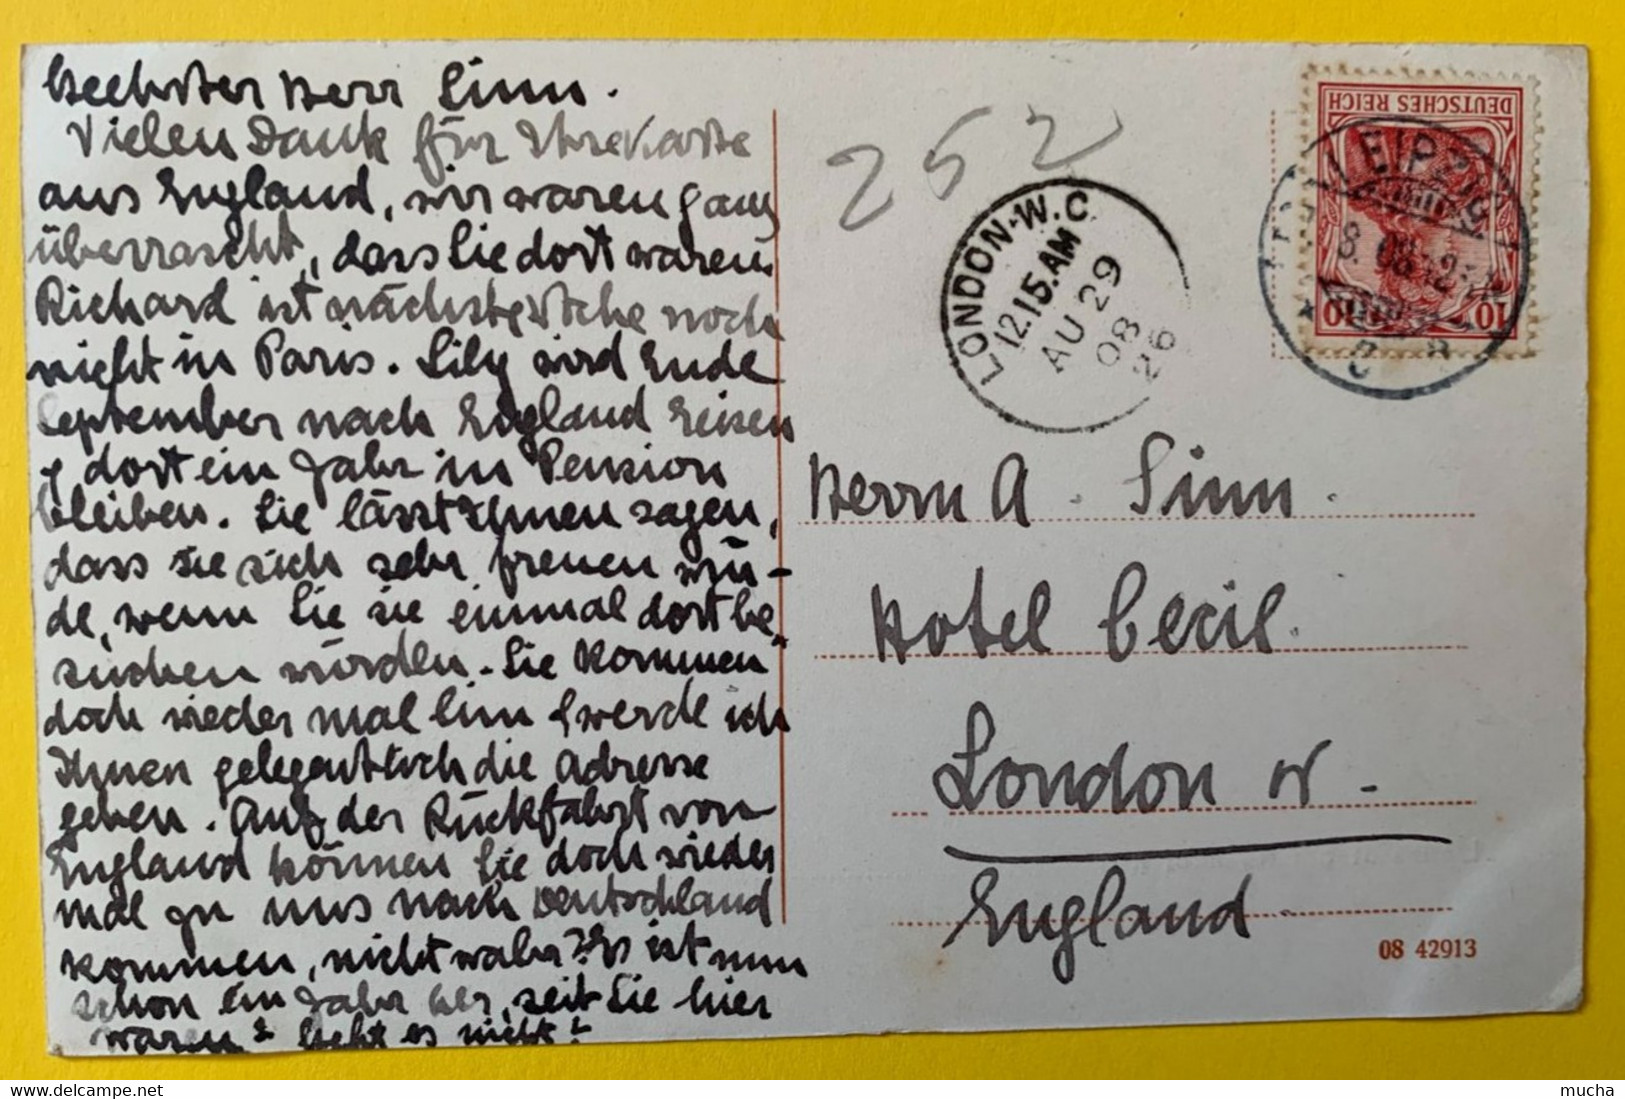 Herr Sinn.
Vielen Dank für Ihre Karte
aus England, wir waren ganz
überrascht, dass Sie dort waren
Richard ist nächste Woche noch
nicht in Paris. Lily wird Ende
September nach England reisen
& dort ein Jahr in Pension
bleiben. Sie lässt Ihnen sagen,
dass sie sich sehr freuen wür-
de, wenn Sie sie einmal dort be-
suchen würden. Sie kommen
doch wieder mal hin & werde ich
Ihnen gelegentlich die Adresse
geben. Auf der Rückfahrt von
England können Sie doch wieder
mal zu uns nach Deutschland
kommen, nicht wahr? Es ist nun
schon ein Jahr her, seit Sie hier
waren. Geht es nicht?
252
LONDON·W.C.
12.15.AM
AU 29
08
26
DEUTSCHES REICH
10 10
LEIPZIG
8. 08. 12
Herrn A. Sinn.
Hotel Cecil.
London W.
England.
08 42913
mucha